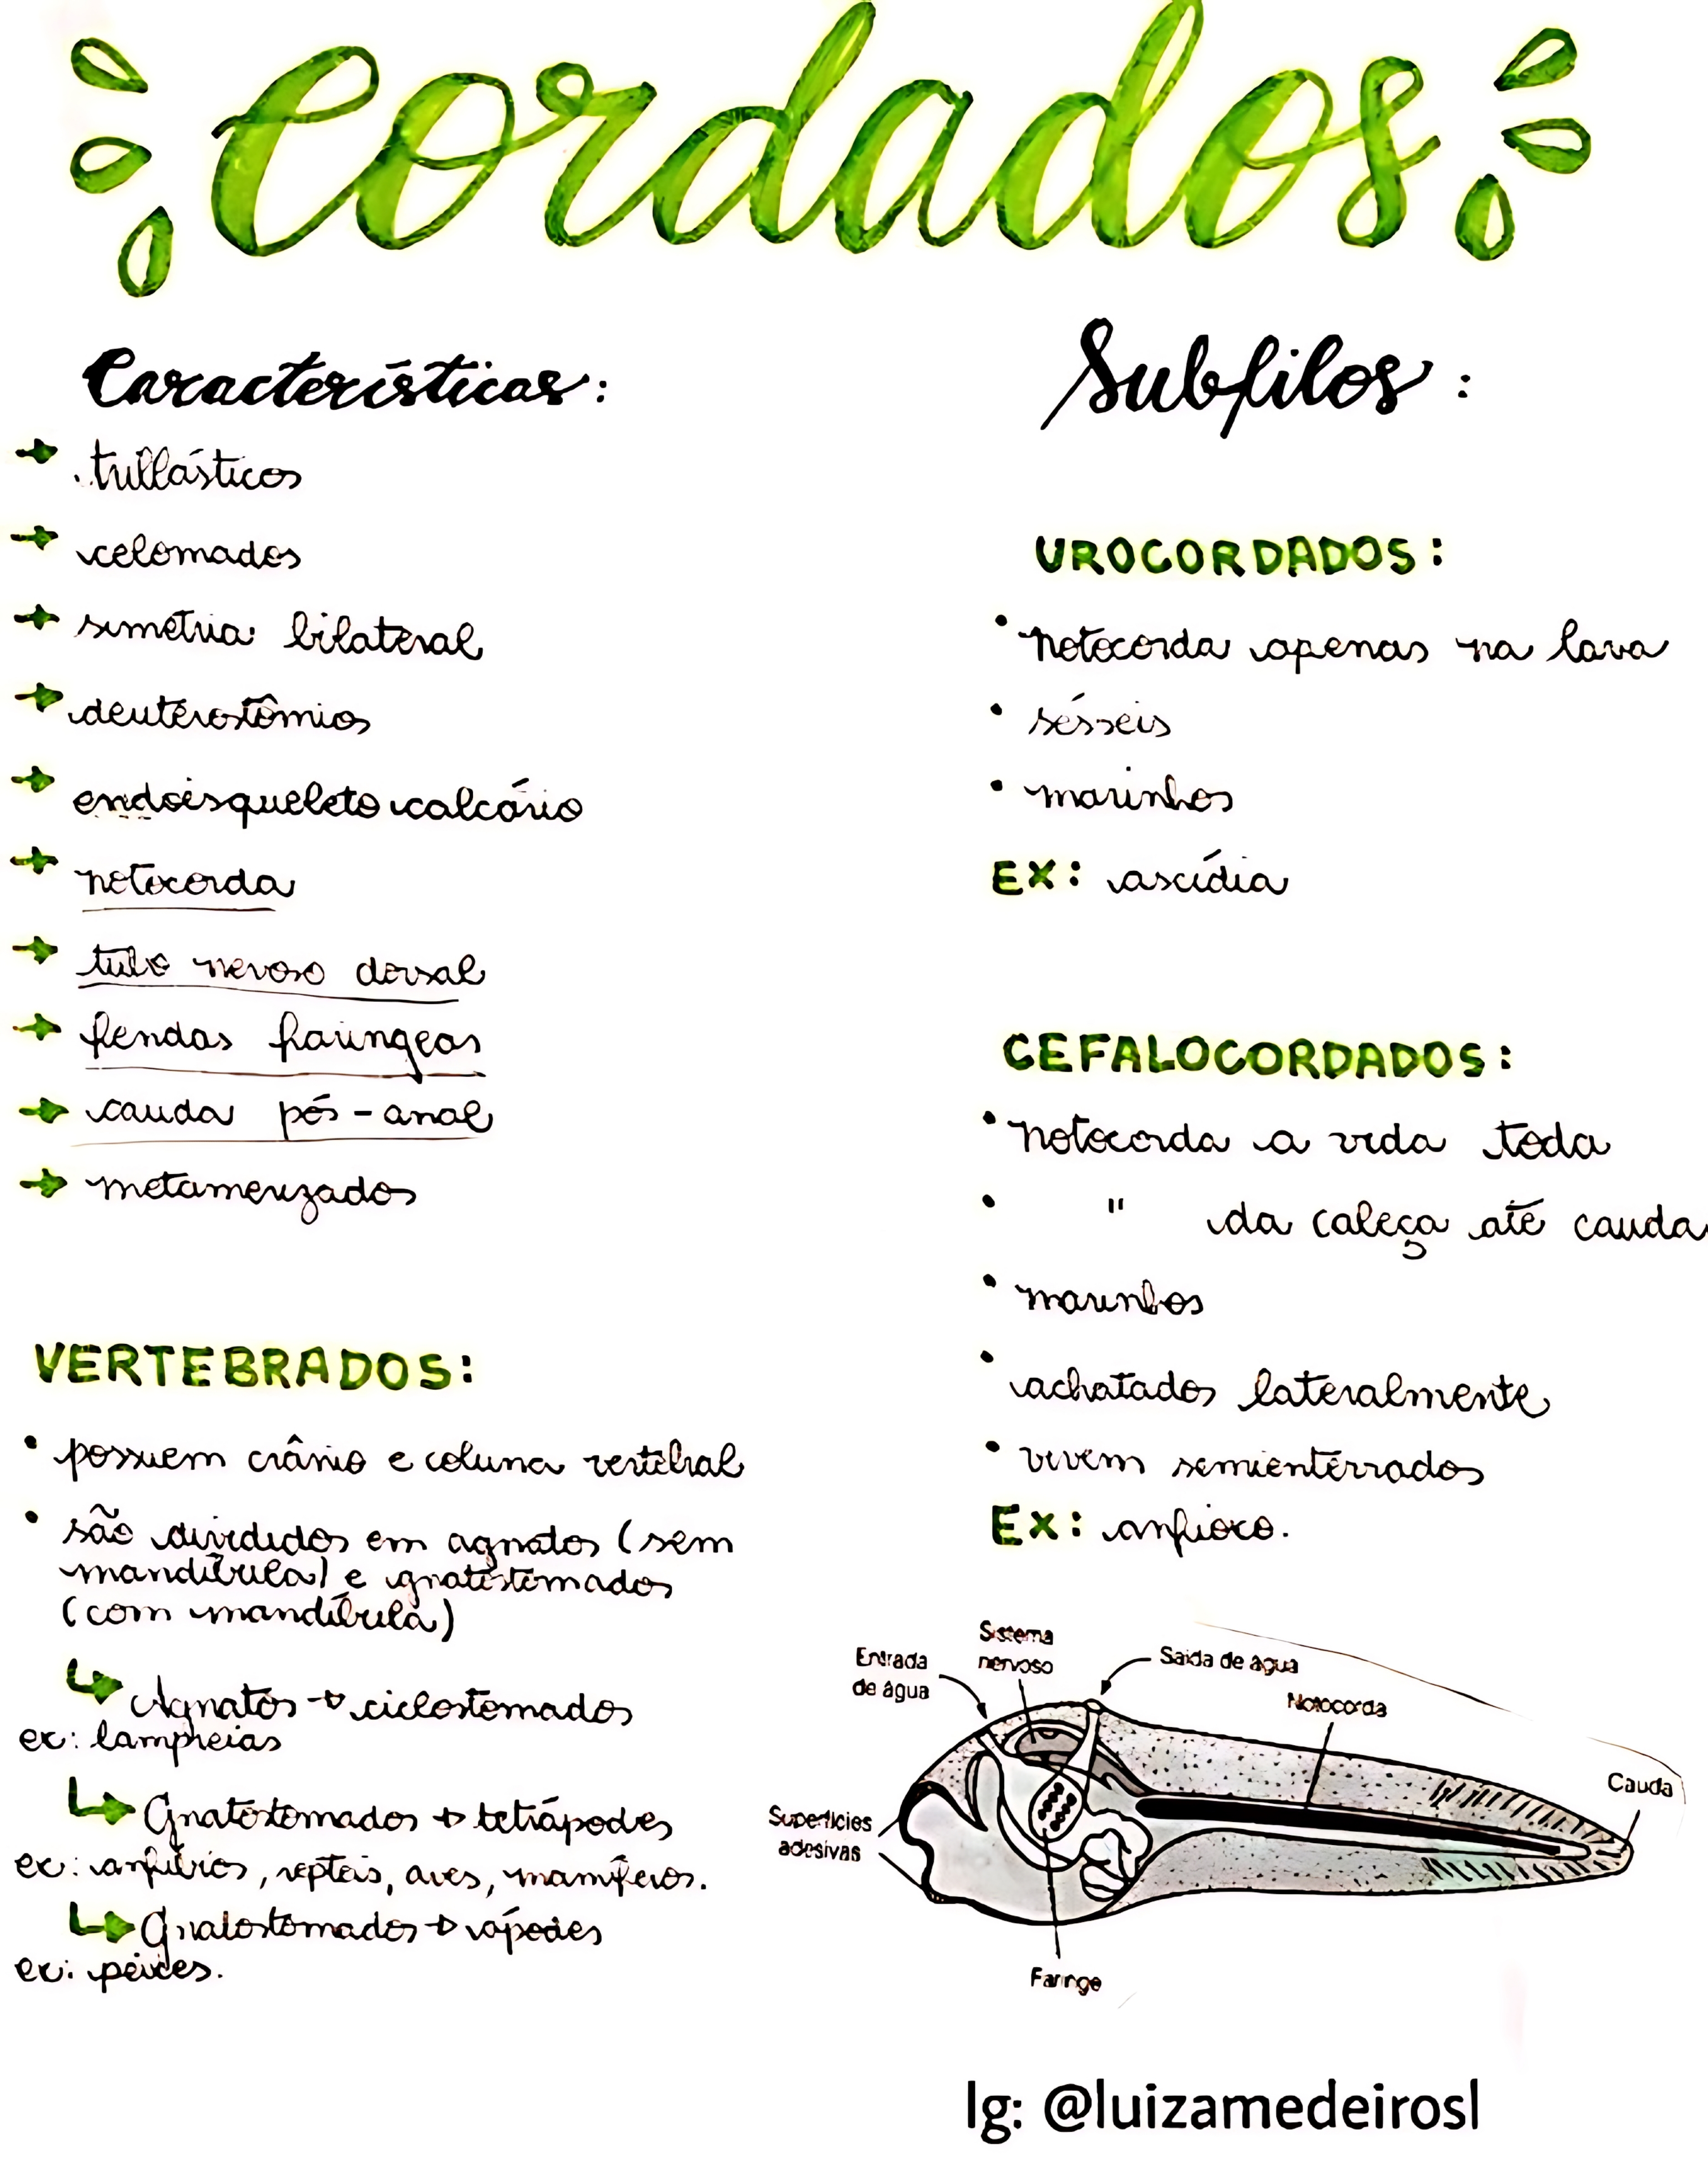 cordados
Características:
→ triblásticos
→ celomados
→ simetria bilateral
→ deuterostômios
→ endoesqueleto calcário
→ notocorda
→ tubo nervoso dorsal
→ fendas faríngeas
→ cauda pós-anal
→ metamerizados
VERTEBRADOS:
• possuem crânio e coluna vertebral
• são divididos em agnatos (sem
mandíbula) e gnatostomados
(com mandíbula)
↳ Agnatos → ciclostomados
ex: lampreias
↳ Gnatostomados → tetrápodes
ex: anfíbios, répteis, aves, mamíferos.
↳ Gnatostomados → ápodes
ex: peixes.
Subfilos:
UROCORDADOS:
• notocorda apenas na lava
• sésseis
• marinhos
EX: ascídia
CEFALOCORDADOS:
• notocorda a vida toda
• " da cabeça até cauda
• marinhos
• achatados lateralmente
• vivem semienterrados
Ex: anfioxo.
Entrada
de água
Sistema
nervoso
Saída de água
Notocorda
Cauda
Superfícies
adesivas
Faringe
Ig: @luizamedeirosl